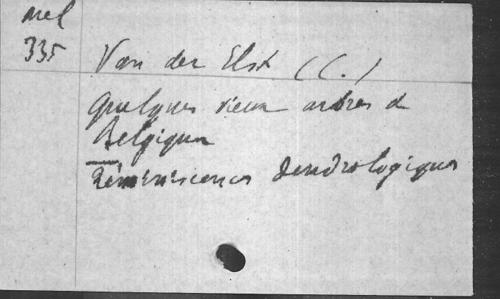 Mel
335
Van der Elst (C.)
Quelques vieux arbres de
Belgique
Réminiscences dendrologiques